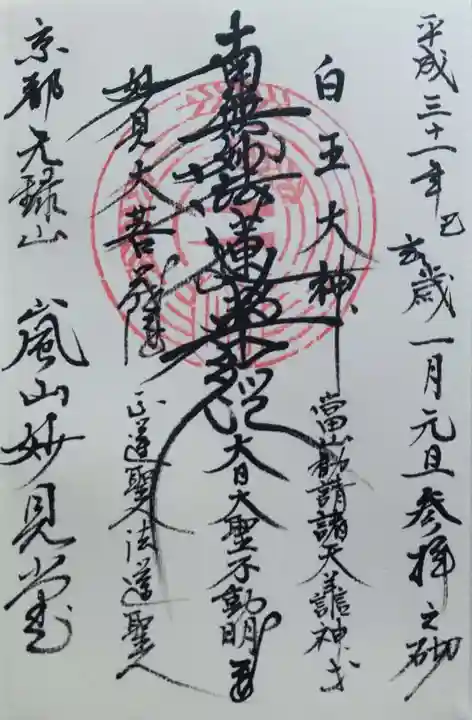 平成三十一年己亥歳一月元旦参拝之砌
白王大神
當山勧請諸天善神等
南無妙法蓮華経
大日大聖不動明王
妙見大菩薩
正道聖人法道聖人
京都元録山 嵐山妙見堂